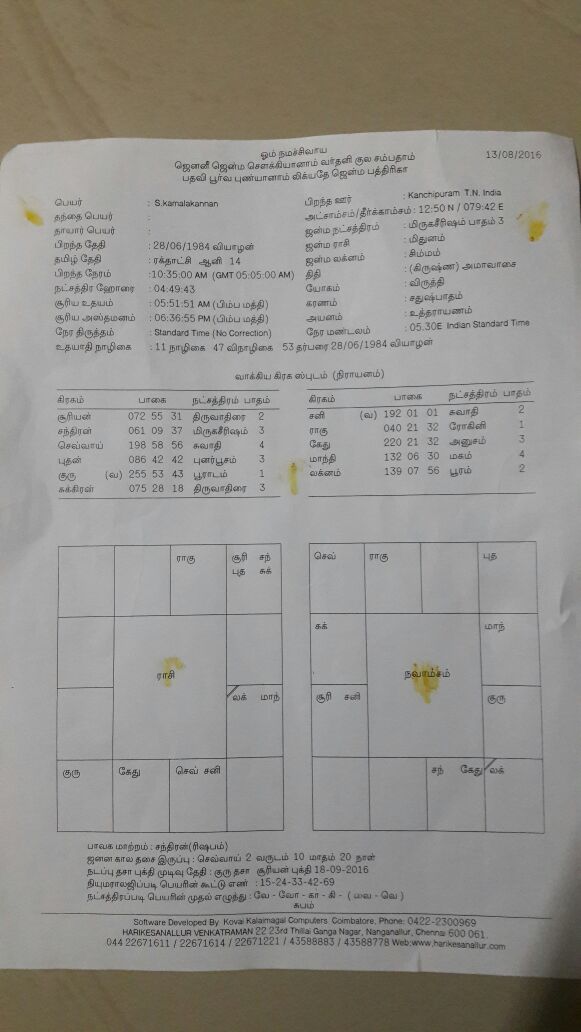 ஓம் நமச்சிவாய
ஜெனனீ ஜென்ம சௌக்கியானாம் வர்தனி குல சம்பதாம்
பதவி பூர்வ புண்யானாம் லிக்யதே ஜென்ம பத்திரிகா
13/08/2016
பெயர் : S.kamalakannan
தந்தை பெயர் :
தாயார் பெயர் :
பிறந்த தேதி : 28/06/1984 வியாழன்
தமிழ் தேதி : ரக்தாட்சி ஆனி 14
பிறந்த நேரம் :10:35:00 AM (GMT 05:05:00 AM)
நட்சத்திர ஹோரை : 04:49:43
சூரிய உதயம் : 05:51:51 AM (பிம்ப மத்தி)
சூரிய அஸ்தமனம் : 06:36:55 PM (பிம்ப மத்தி)
நேர திருத்தம் : Standard Time (No Correction)
உதயாதி நாழிகை : 11 நாழிகை 47 விநாழிகை 53 தர்பரை 28/06/1984 வியாழன்
பிறந்த ஊர் : Kanchipuram T.N. India
அட்சாம்சம்/தீர்க்காம்சம் : 12:50 N / 079:42 E
ஜன்ம நட்சத்திரம் : மிருகசீரிஷம் பாதம் 3
ஜன்ம ராசி : மிதுனம்
ஜன்ம லக்னம் : சிம்மம்
திதி : (கிருஷ்ண) அமாவாசை
யோகம் : விருத்தி
கரணம் : சதுஷ்பாதம்
அயனம் : உத்தராயணம்
நேர மண்டலம் : 05.30E Indian Standard Time
வாக்கிய கிரக ஸ்புடம் (நிராயனம்)
கிரகம் பாகை நட்சத்திரம் பாதம்
சூரியன் 072 55 31 திருவாதிரை 2
சந்திரன் 061 09 37 மிருகசீரிஷம் 3
செவ்வாய் 198 58 56 சுவாதி 4
புதன் 086 42 42 புனர்பூசம் 3
குரு (வ) 255 53 43 பூராடம் 1
சுக்கிரன் 075 28 18 திருவாதிரை 3
கிரகம் பாகை நட்சத்திரம் பாதம்
சனி (வ) 192 01 01 சுவாதி 2
ராகு 040 21 32 ரோகினி 1
கேது 220 21 32 அனுசம் 3
மாந்தி 132 06 30 மகம் 4
லக்னம் 139 07 56 பூரம் 2
ராகு சூரி சந்
புத சுக்
ராசி
லக் மாந்
குரு கேது செவ் சனி
செவ் ராகு புத
சுக் மாந்
நவாம்சம்
சூரி சனி குரு
சந் கேது லக்
பாவக மாற்றம் : சந்திரன்(ரிஷபம்)
ஜனன கால தசை இருப்பு : செவ்வாய் 2 வருடம் 10 மாதம் 20 நாள்
நடப்பு தசா புக்தி முடிவு தேதி : குரு தசா சூரியன் புக்தி 18-09-2016
நியுமராலஜிப்படி பெயரின் கூட்டு எண் : 15-24-33-42-69
நட்சத்திரப்படி பெயரின் முதல் எழுத்து : வே - வோ - கா - கி - ( வை - வெ )
சுபம்
Software Developed By Kovai Kalaimagal Computers Coimbatore, Phone: 0422-2300969
HARIKESANALLUR VENKATRAMAN 22 23rd Thillai Ganga Nagar, Nanganallur, Chennai 600 061.
044 22671611 / 22671614 / 22671221 / 43588883 / 43588778 Web:www.harikesanallur.com